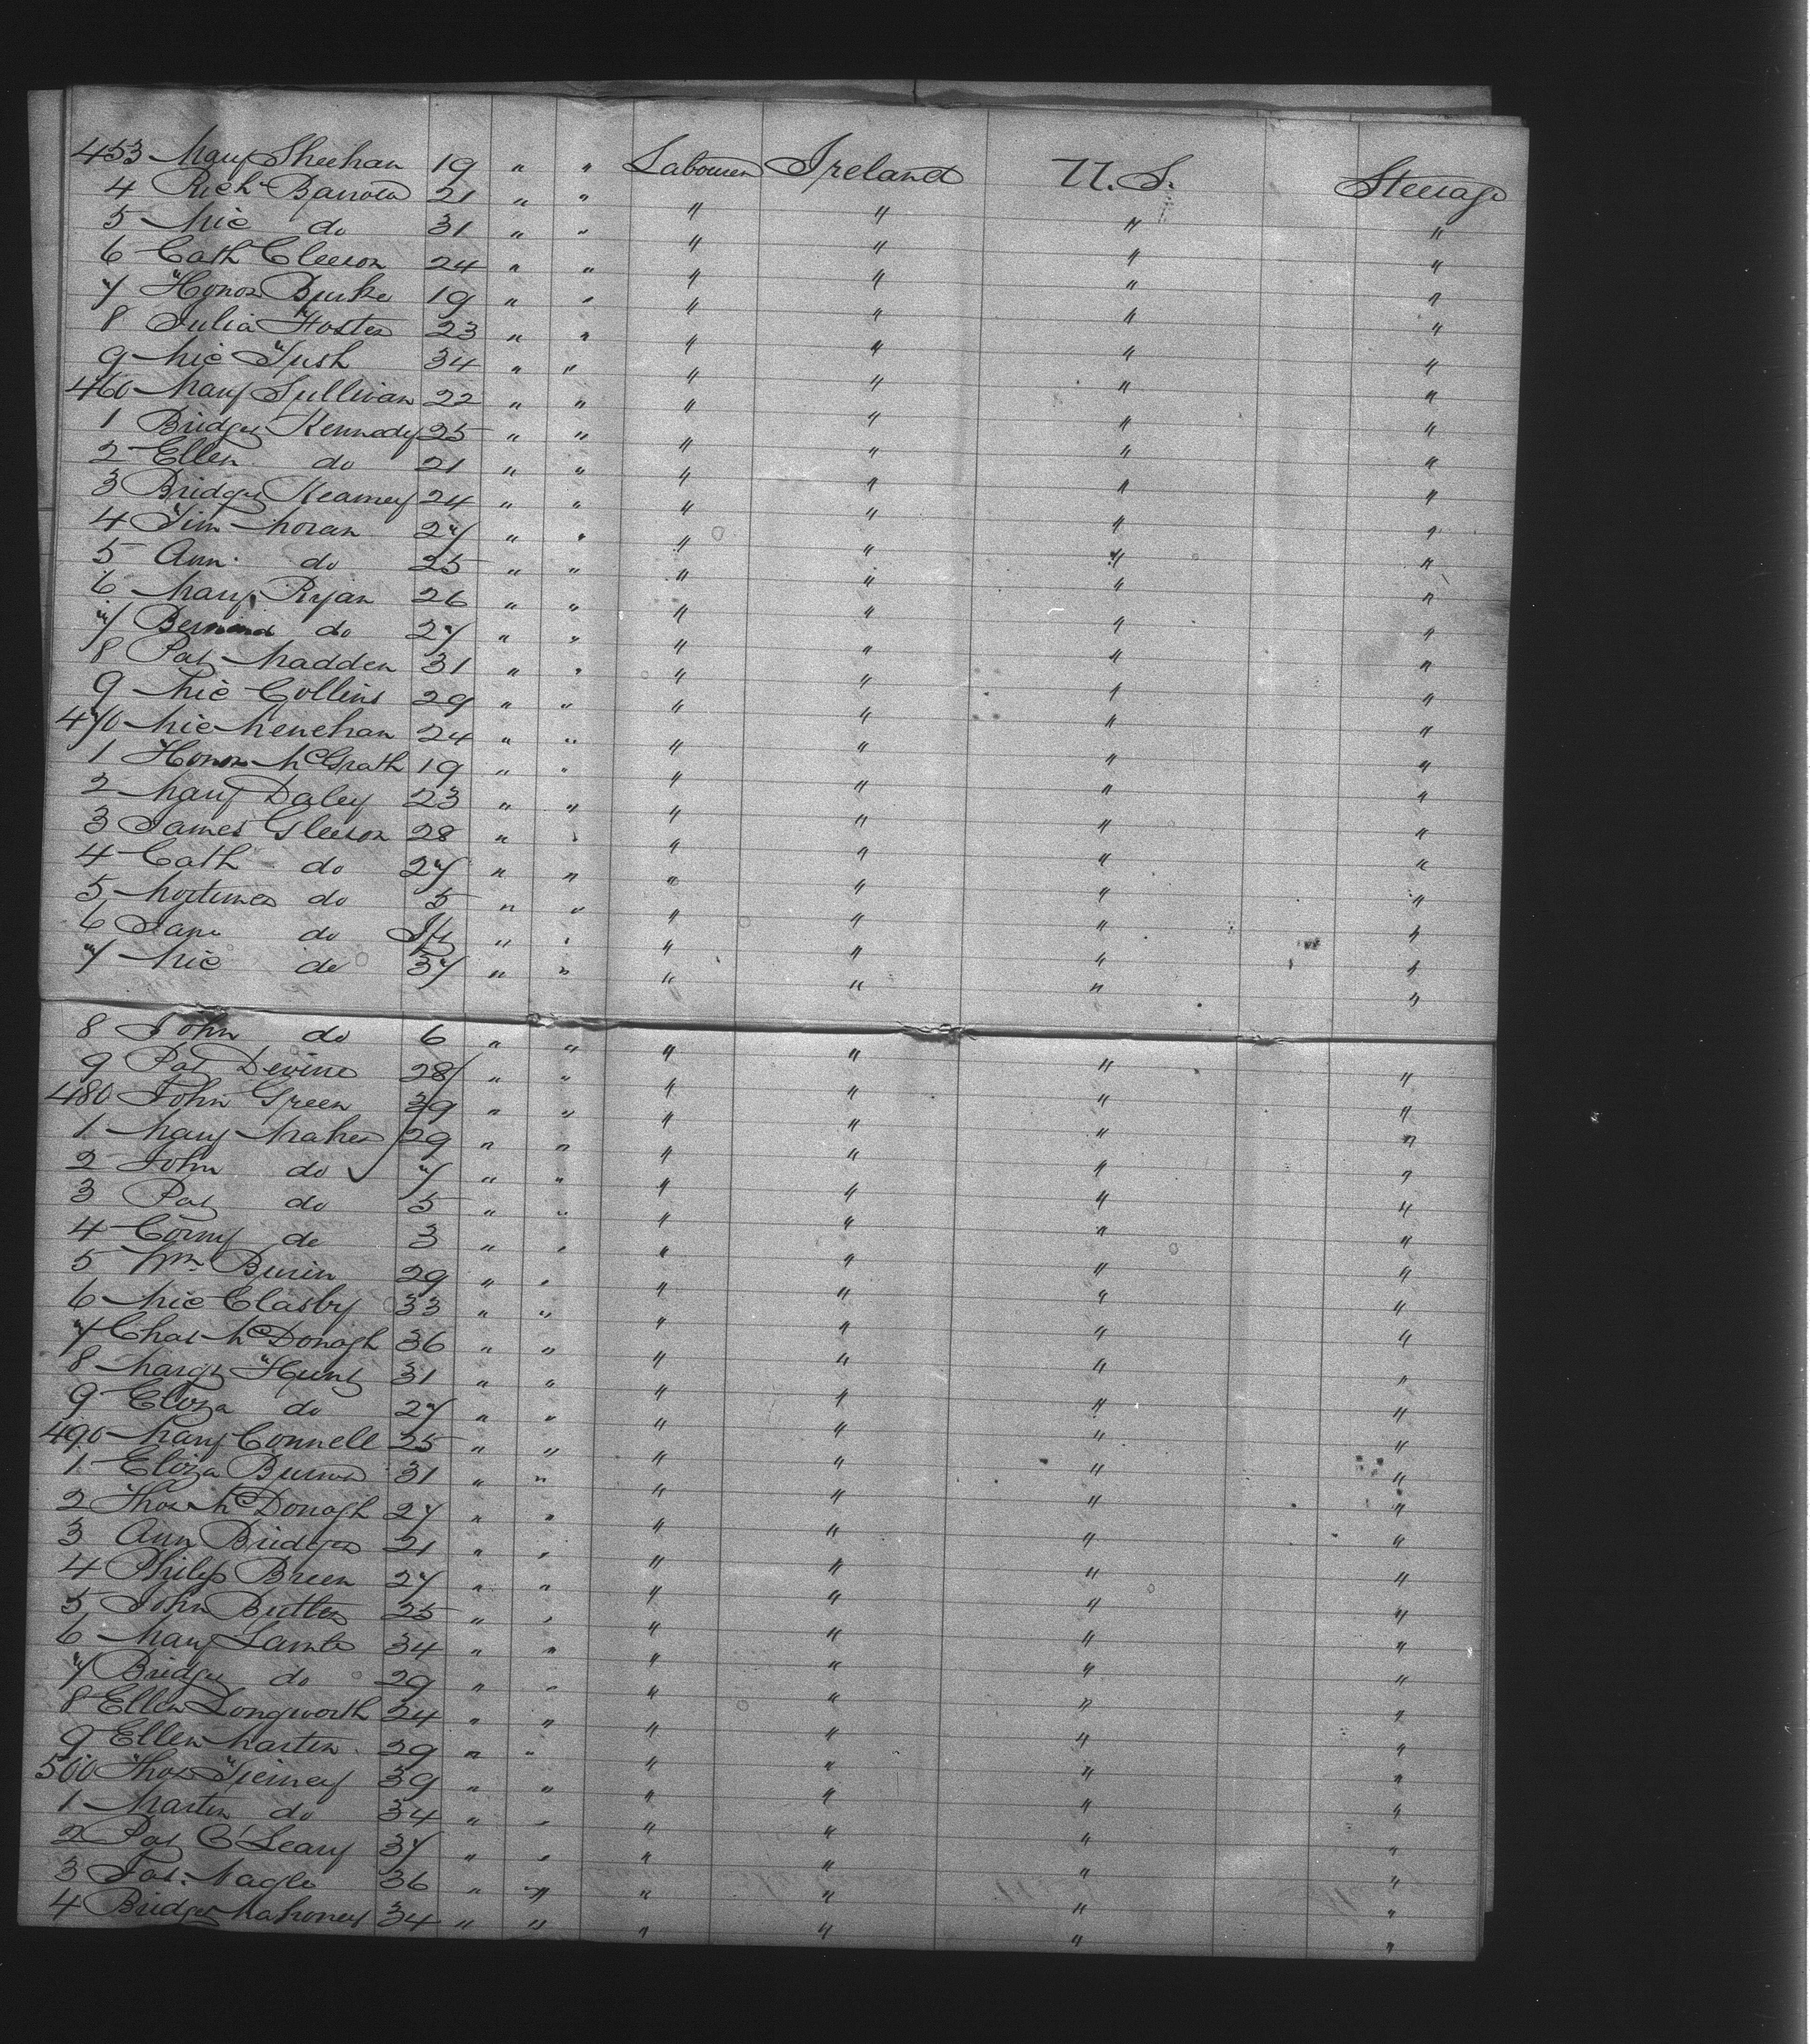 453 Mary Sheehan 19 " " Labourer Ireland U.S. Steerage
4 Richd Barrow 21 " " " " " "
5 Mic do 31 " " " " " "
6 Cath Gleeson 24 " " " " " "
7 Honor Burke 19 " " " " " "
8 Julia Foster 23 " " " " " "
9 Mic Tush 34 " " " " " "
460 Mary Sullivan 22 " " " " " "
1 Bridget Kennedy 25 " " " " " "
2 Ellen do 21 " " " " " "
3 Bridget Kearney 24 " " " " " "
4 Tim Moran 27 " " " " " "
5 Ann do 25 " " " " " "
6 Mary Ryan 26 " " " " " "
7 Bernard do 27 " " " " " "
8 Pat Madden 31 " " " " " "
9 Mic Collins 29 " " " " " "
470 Mic Menehan 24 " " " " " "
1 Honor McGrath 19 " " " " " "
2 Mary Daley 23 " " " " " "
3 James Gleeson 28 " " " " " "
4 Cath do 27 " " " " " "
5 Mortimer do 5 " " " " " "
6 Jane do Ift " " " " " "
7 Mic do 37 " " " " " "
8 John do 6 " " " " " "
9 Pat Devine 28 " " " " " "
480 John Green 39 " " " " " "
1 Mary Maher 29 " " " " " "
2 John do 7 " " " " " "
3 Pat do 5 " " " " " "
4 Corny do 3 " " " " " "
5 Wm 29 " " " " " "
6 Mic Clasby 33 " " " " " "
7 Chas McDonagh 36 " " " " " "
8 Margt Hunt 31 " " " " " "
9 Eliza do 27 " " " " " "
490 Mary Connell 25 " " " " " "
1 Eliza Burns 31 " " " " " "
2 Thos McDonagh 27 " " " " " "
3 Ann Bridges 21 " " " " " "
4 Philip Breen 27 " " " " " "
5 John Butler 25 " " " " " "
6 Mary Lamb 34 " " " " " "
7 Bridget do 29 " " " " " "
8 Ellen Longworth 24 " " " " " "
9 Ellen Martin 29 " " " " " "
500 Thos Tierney 39 " " " " " "
1 Martin do 34 " " " " " "
2 Pat O'Leary 37 " " " " " "
3 Jas. Nagle 36 " " " " " "
4 Bridget Mahoney 34 " " " " " "